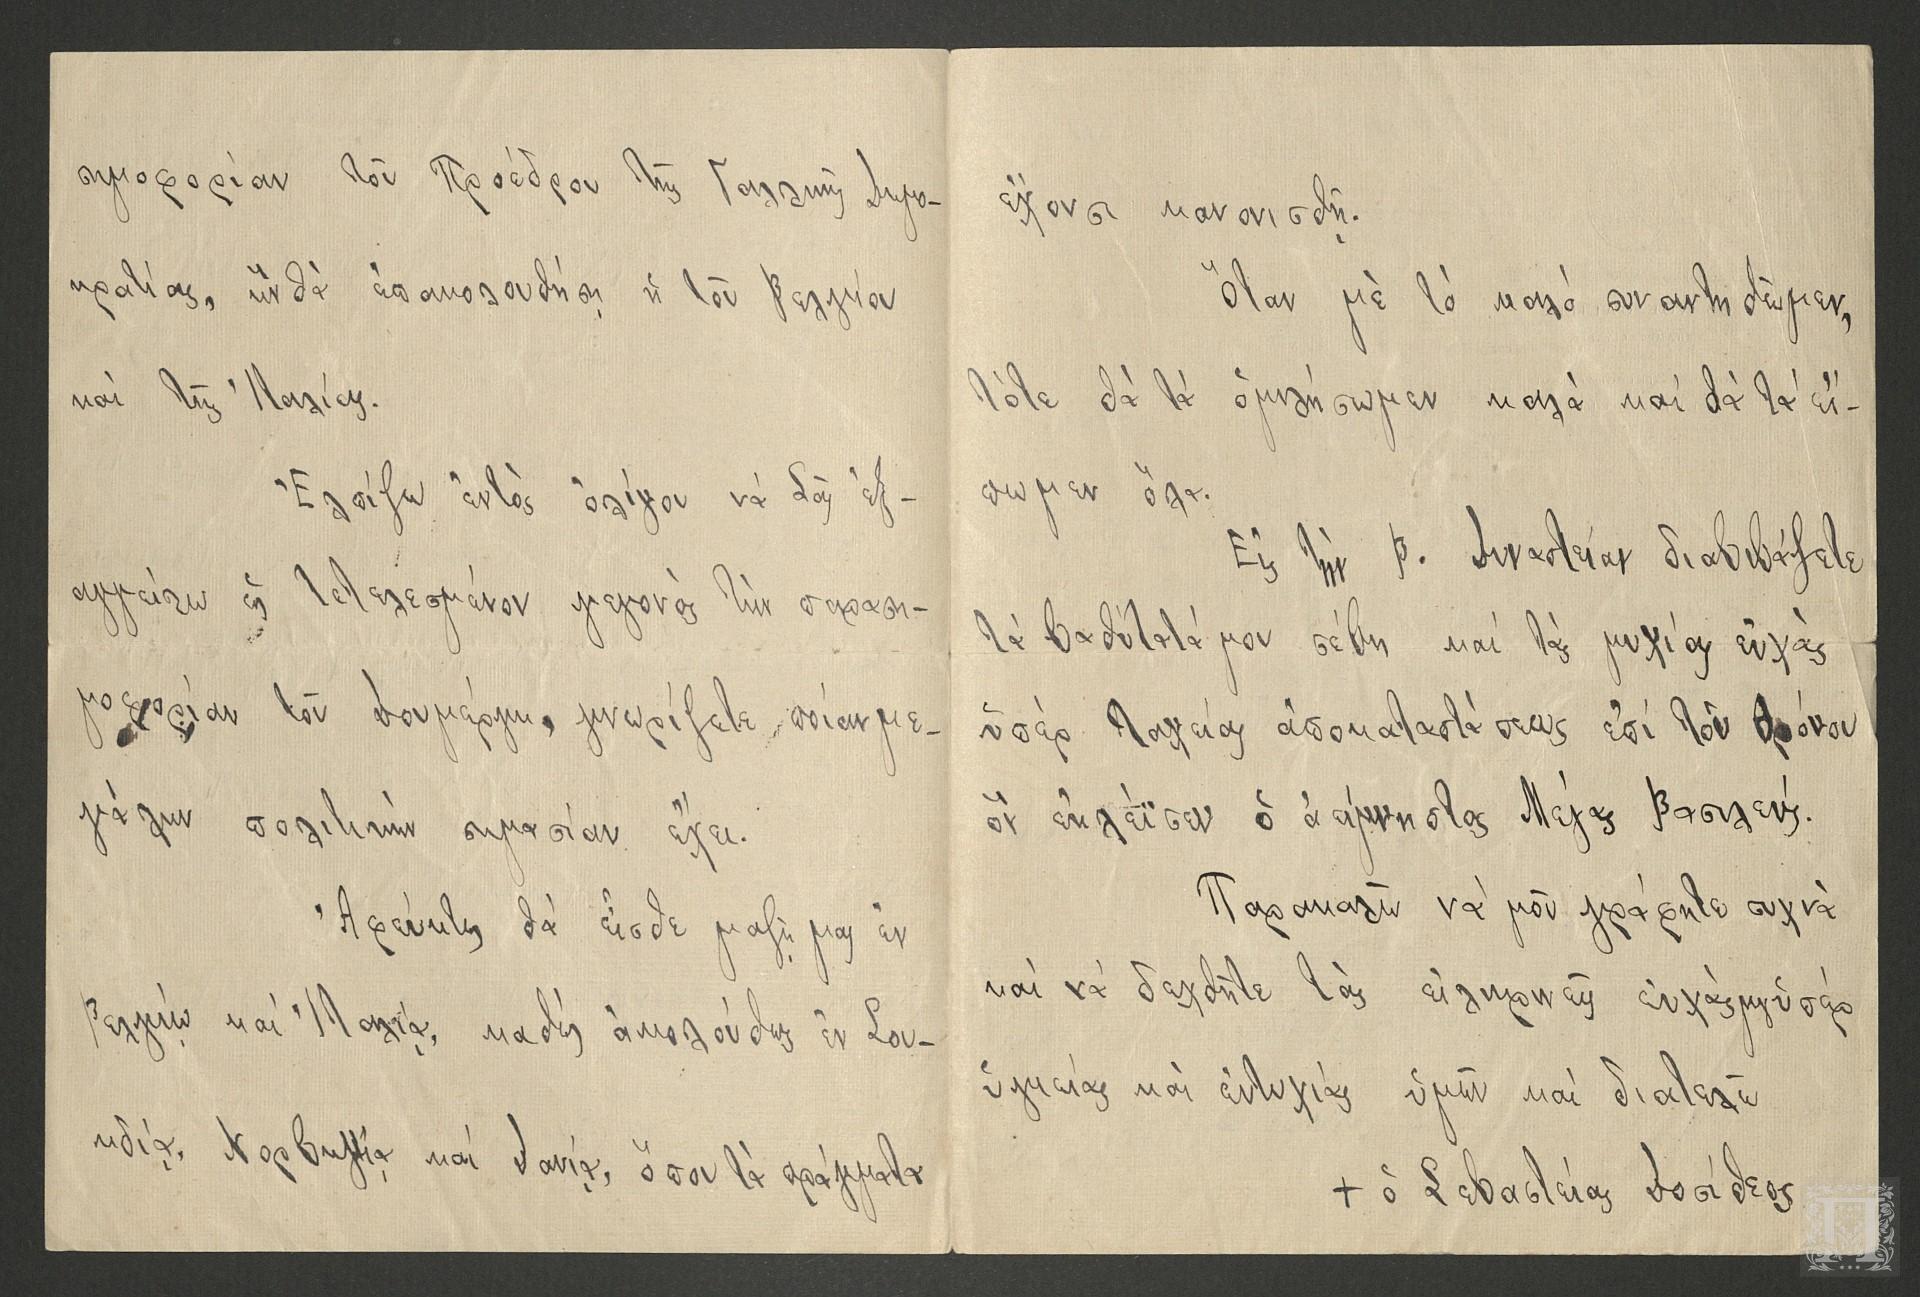 σημοφορίαν τοῦ Προέδρου τῆς Γαλλικῆς Δημο-
κρατίας, ἣν θὰ ἐπακολουθήσῃ ἡ τοῦ Βελγίου
καὶ τῆς Ἰταλίας.
Ἐλπίζω ἐντὸς ὀλίγου νὰ Σᾶς ἐξ-
αγγείλω ὡς τετελεσμένον γεγονὸς τὴν παραση-
μοφορίαν τοῦ Δουμέργκ, γνωρίζετε ποίαν με-
γάλην πολιτικὴν σημασίαν ἔχει.
Ἀφεύκτως θὰ εἶσθε μαζῇ μας ἐν
Βελγίῳ καὶ Ἰταλίᾳ, καθὼς ἀκολούθως ἐν Σου-
ηδίᾳ, Νορβηγίᾳ καὶ Δανίᾳ, ὅπου τὰ πράγματα
ἔχουσι κανονισθῆ.
Ὅταν μὲ τὸ καλὸ συναντηθῶμεν,
τότε θὰ τὰ ὁμιλήσωμεν καλὰ καὶ θὰ τὰ εἴ-
πωμεν ὅλα.
Εἰς τὴν Β. Δυναστείαν διαβιβάζετε
τὰ βαθύτατά μου σέβη καὶ τὰς μυχίας εὐχὰς
ὑπὲρ ταχείας ἀποκαταστάσεως ἐπὶ τοῦ θρόνου
ὃν ἐκλέϊσεν ὁ ἀείμνηστος Μέγας Βασιλεύς.
Παρακαλῶ νὰ μοῦ γράφητε συχνὰ
καὶ νὰ δεχθῆτε τὰς εἰλικρινεῖς εὐχάς μου ὑπὲρ
ὑγιείας καὶ εὐτυχίας ὑμῶν καὶ διατελῶ
+ ὁ Σεβαστείας Δοσίθεος